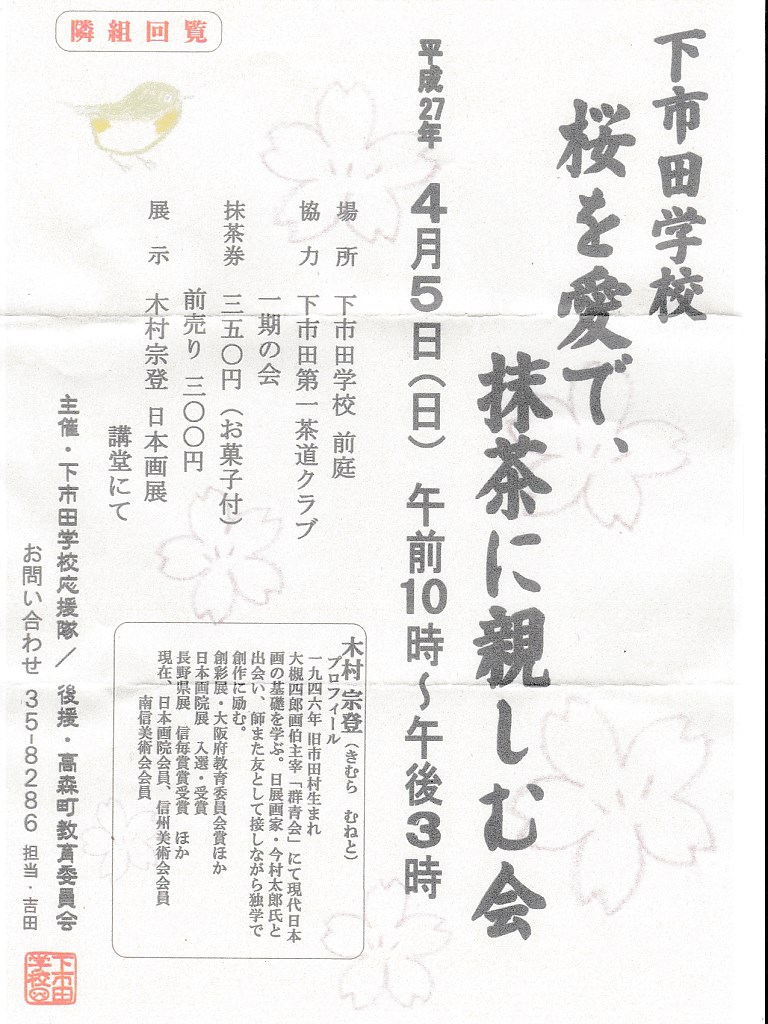 隣組回覧
下市田学校
桜を愛で、
抹茶に親しむ会
平成27年 4月5日(日) 午前10時～午後3時
場所 下市田学校 前庭
協力 下市田第一茶道クラブ
一期の会
抹茶券 三五〇円(お菓子付)
前売り 三〇〇円
展示 木村宗登 日本画展
講堂にて
木村 宗登(きむら むねと)
プロフィール
一九四六年 旧市田村生まれ
大槻四郎画伯主宰「群青会」にて現代日本
画の基礎を学ぶ。日展画家・今村太郎氏と
出会い、師また友として接しながら独学で
創作に励む。
創彩展・大阪府教育委員会賞ほか
日本画院展 入選・受賞
長野県展 信毎賞賞受賞 ほか
現在、日本画院会員、信州美術会会員
南信美術会会員
主催・下市田学校応援隊／後援・高森町教育委員会
お問い合わせ 35-8286 担当・吉田
下市田
学校